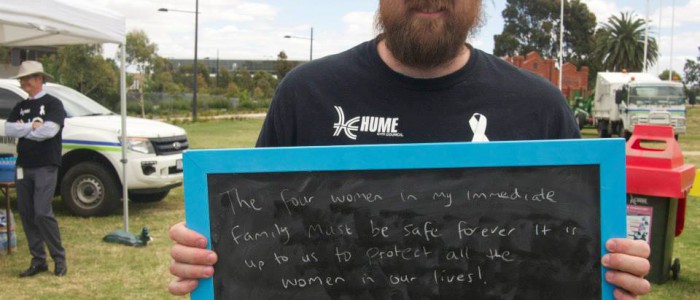 HUME
CITY COUNCIL
The four women in my immediate
family must be safe forever It is
up to us to protect all the
women in our lives!